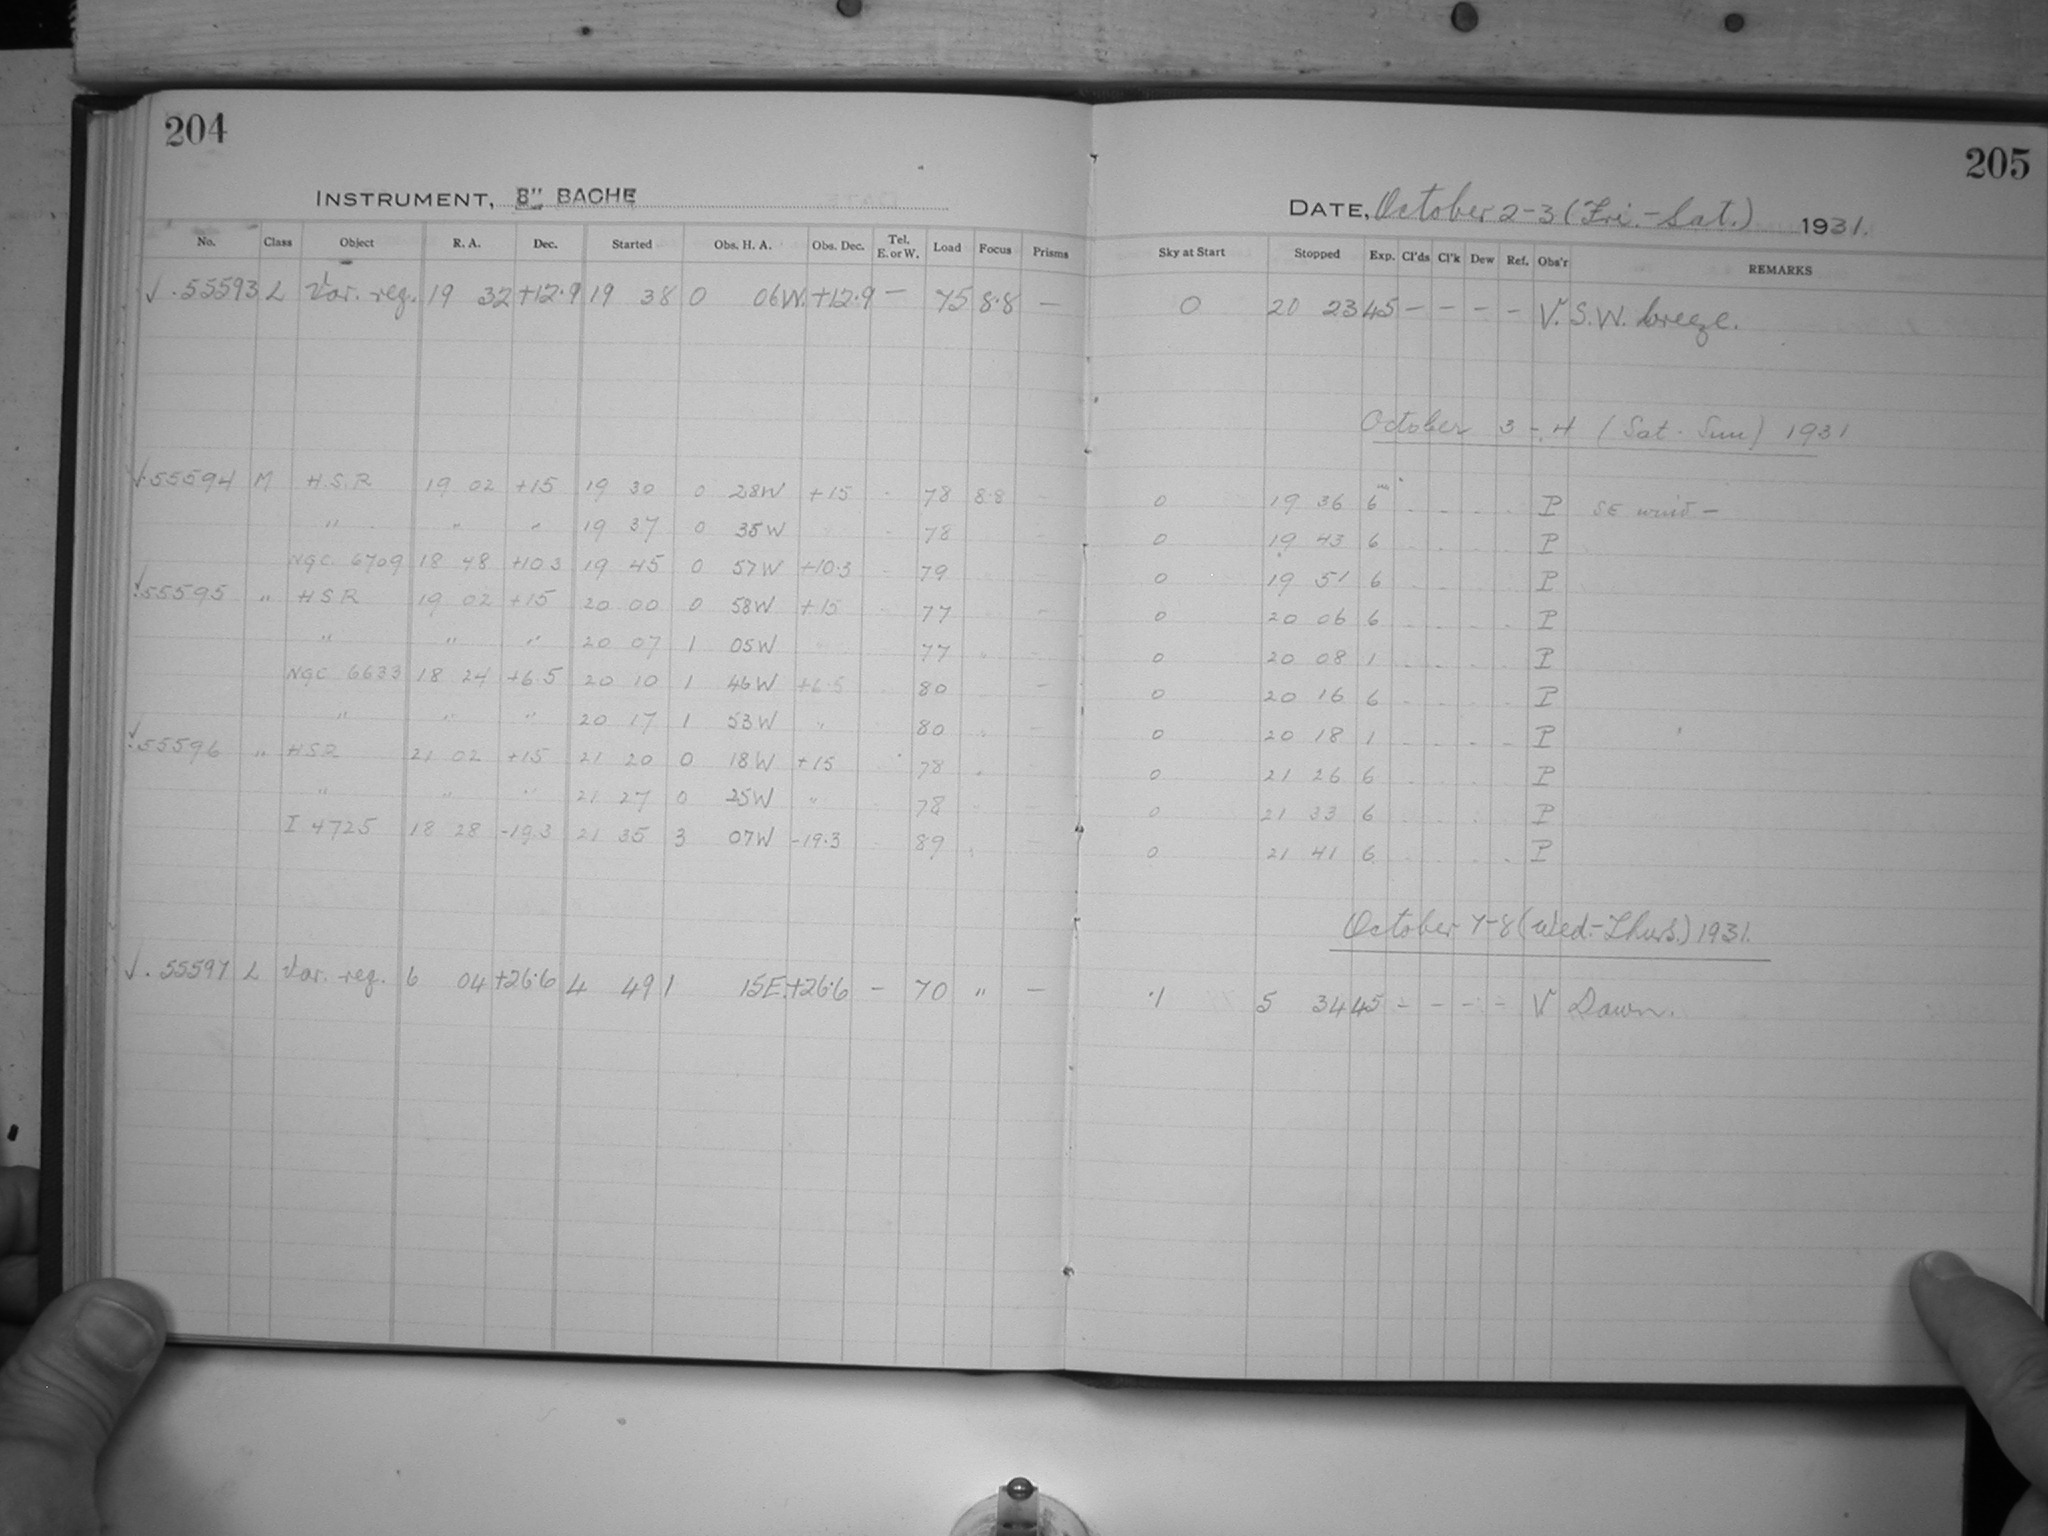 204
INSTRUMENT, 8" BACHE
No. Class Object R. A. Dec. Started Obs. H. A. Obs. Dec. Tel. E. or W. Load Focus Prisms
√ . 55593 L Var. reg. 19 32 +12.9 19 38 0 06W. +12.9 — 75 8.8 —
√ . 55594 M H.S.R 19 02 +15 19 30 0 28W +15 - 78 8.8 -
" " " 19 37 0 35W 78
NGC 6709 18 48 +10.3 19 45 0 57W +10.3 79
√ . 55595 " HSR 19 02 +15 20 00 0 58W +15 77
" " " 20 07 1 05W " 77 " -
NGC 6633 18 24 +6.5 20 10 1 46W +6.5 80 -
" " " 20 17 1 53W " 80 " -
√ . 55596 " HSR 21 02 +15 21 20 0 18W +15 78 "
" " " 21 27 0 25W " 78 -
I 4725 18 28 -19.3 21 35 3 07W -19.3 89 -
√ . 55597 L Var. reg. 6 04 +26.6 4 49 1 15E. +26.6 — 70 " —
205
DATE, October 2-3 (Fri.-Sat.) 1931.
Sky at Start Stopped Exp. Cl'ds Cl'k Dew Ref. Obs'r REMARKS
0 20 23 45 — — — — V. S.W. breeze.
October 3 - 4 (Sat - Sun) 1931
0 19 36 6 - - - - P SE wind —
0 19 43 6 - - - - P
0 19 51 6 - - - - P
0 20 06 6 - - - - P
0 20 08 1 - - - - P
0 20 16 6 - - - - P
0 20 18 1 - - - - P
0 21 26 6 - - - - P
0 21 33 6 - - - - P
0 21 41 6 - - - - P
October 7-8 (Wed.-Thurs.) 1931.
.1 5 34 45 — — — — V Dawn.